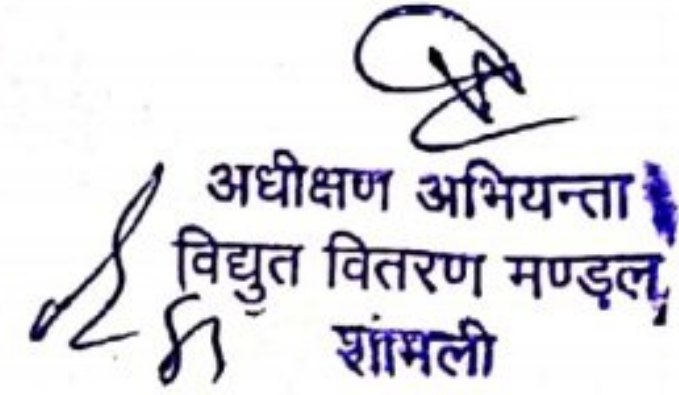 अधीक्षण अभियन्ता
विद्युत वितरण मण्ड़ल,
शामली